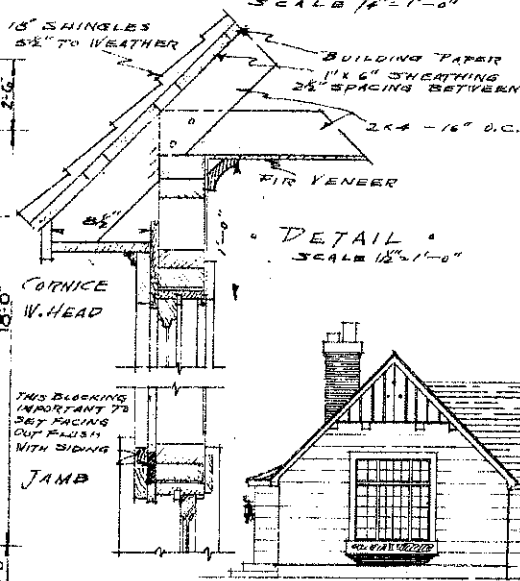 SCALE 1/4"=1'-0"
18" SHINGLES
5 1/2" TO WEATHER
BUILDING PAPER
1" X 6" SHEATHING
2 1/2" SPACING BETWEEN
2'-6"
2X4 - 16" O.C.
FIR VENEER
8 1/2"
1'-0"
DETAIL
SCALE 1 1/2"=1'-0"
CORNICE
W. HEAD
18'-0"
THIS BLOCKING
IMPORTANT TO
SET FACING
OUT FLUSH
WITH SIDING
JAMB